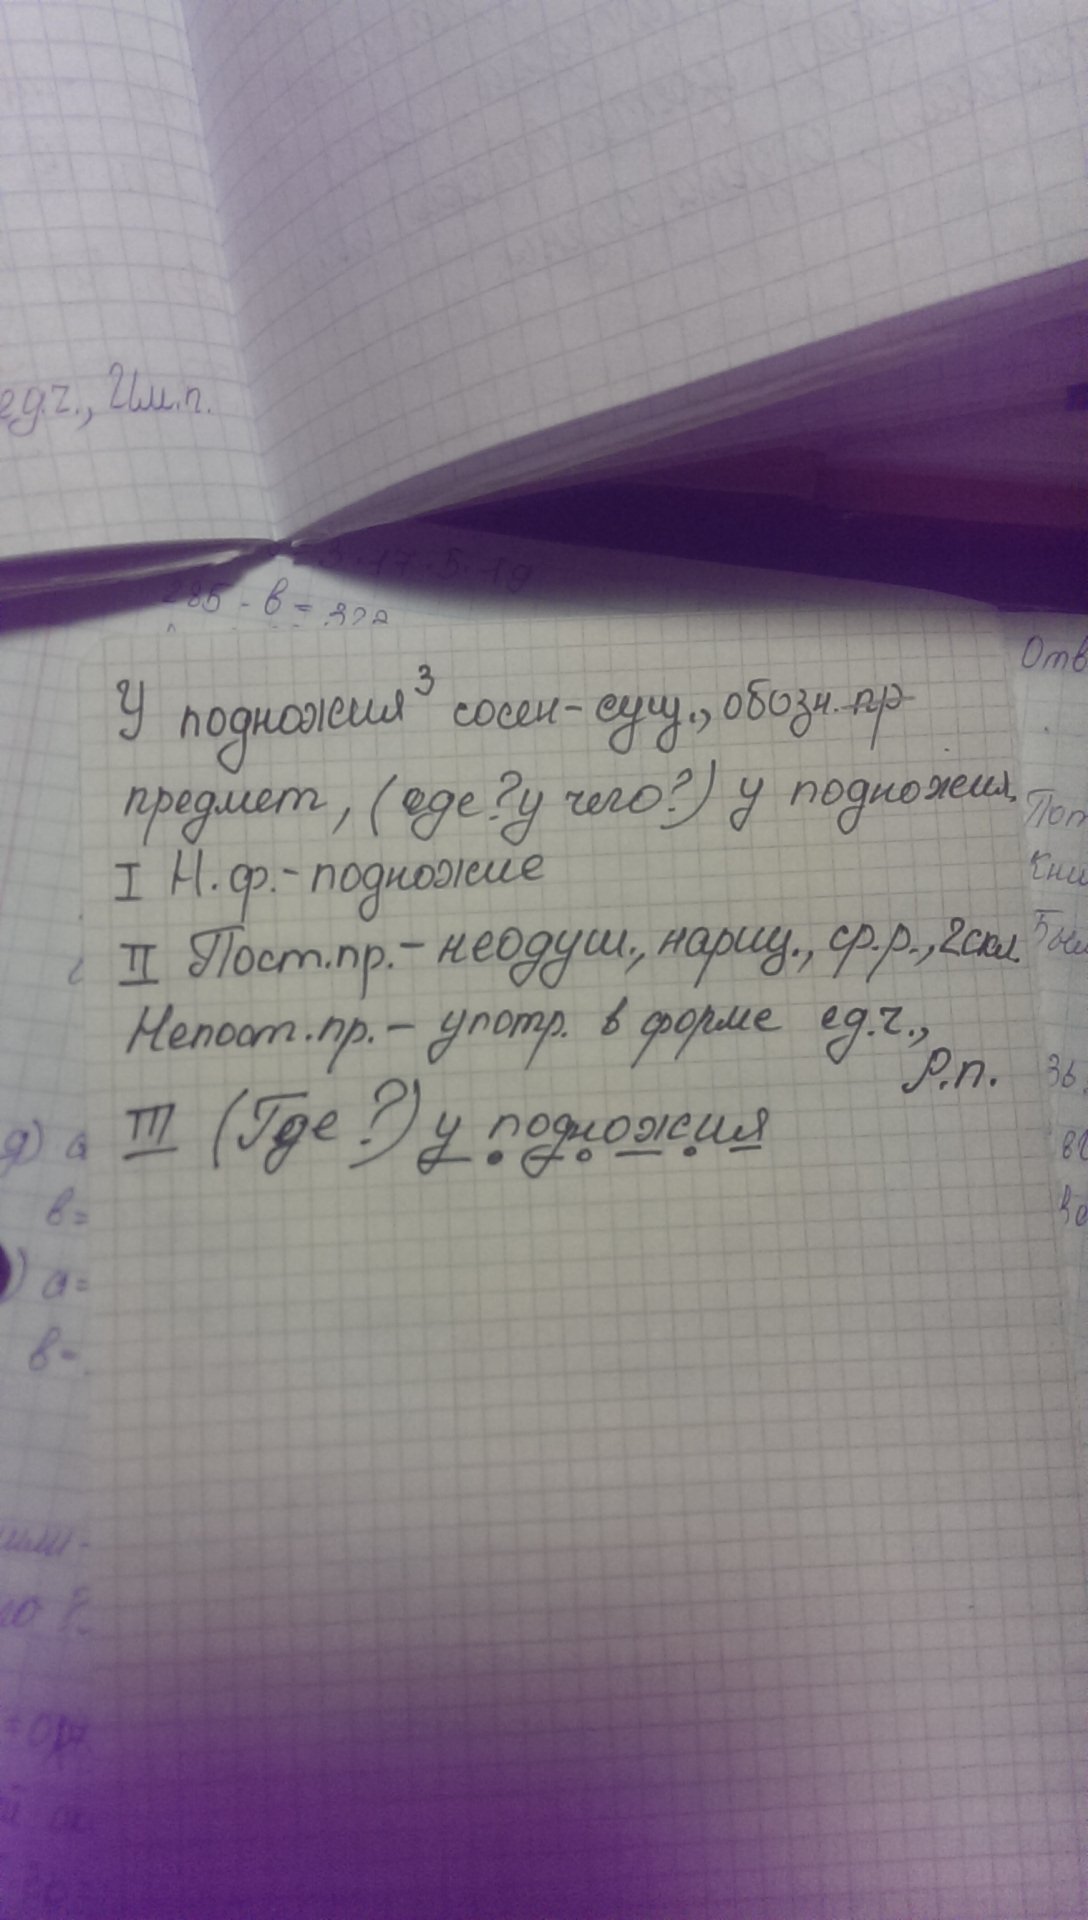 ед.ч., Им.п.
285 - в = 322
У подножия³ сосен - сущ., обозн. пр
предмет, (где? у чего?) у подножия.
I Н.ф. - подножие
II Пост.пр. - неодуш., нариц., ср.р., 2скл.
Непост.пр. - употр. в форме ед.ч.,
Р.п.
III (Где?) у подножия
Отв
Пот
Кни
д) а
в=
) а=
в=